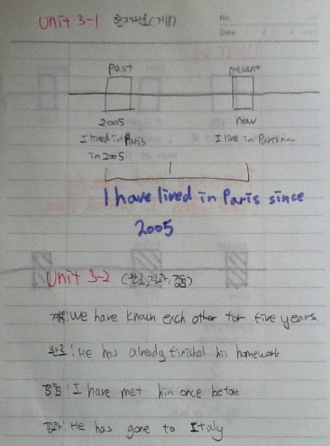 Unit 3-1 현재완료(계속)
No.
Date
Past
present
2005
now
I lived in Paris
I live in Paris now
in 2005
I have lived in Paris since
2005
Unit 3-2 (완료,결과,경험)
계속:We have known each other for five years
완료:He has already finished his homework
경험:I have met him once before
결과:He has gone to Italy